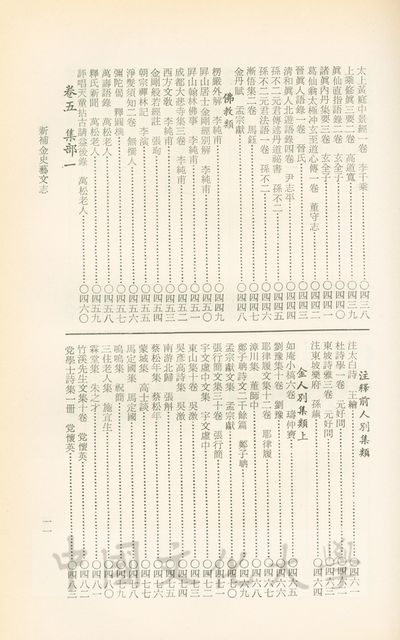 太上黃庭中景經一卷　李千乘……〇四三八
上乘修眞三要二卷　高道寬……〇四三九
眞仙直指語錄二卷　玄全子……〇四四〇
諸眞內丹集要三卷　玄全子……〇四四一
葛仙翁太極冲玄至道心傳一卷　董守志……〇四四二
晉眞人語錄一卷　晉氏……〇四四三
清和眞人北遊語錄四卷　尹志平……〇四四四
孫不二元君傳述丹道祕書　孫不二……〇四四五
孫不二元君法語一卷　孫不二……〇四四六
漸悟集二卷　馬鈺……〇四四七
金丹賦　孟宗獻……〇四四八
佛教類
楞嚴外解　李純甫……〇四四九
屛山居士金剛經別解　李純甫……〇四五〇
屛山翰林佛事　李純甫……〇四五一
成都大悲寺集三卷　李純甫……〇四五二
西方文教　李純甫……〇四五三
金剛般若經註　張珣……〇四五四
朝宗禪林記　李演……〇四五五
淨髮須知二卷　無攖人……〇四五六
彌陀偈　釋圓機……〇四五七
萬壽語錄　萬松老人……〇四五八
釋氏新聞　萬松老人……〇四五九
評唱天童拈古請益後錄　萬松老人……〇四六〇
卷五　集部一
注釋前人別集類
注太白詩　王繪……〇四六一
杜詩學一卷　元好問……〇四六二
東坡詩雅三卷　元好問……〇四六三
注東坡樂府　孫鎭……〇四六四
金人別集類上
如庵小稿六卷　璹仲寶……〇四六五
劉豫集十卷　劉豫……〇四六六
耶律履文集十二卷　耶律履……〇四六七
漳川集　董師中……〇四六八
鄭子聃詩文二千餘篇　鄭子聃……〇四六九
孟宗獻文集　孟宗獻……〇四七〇
張行簡文集三十卷　張行簡……〇四七一
宇文虛中文集　宇文虛中……〇四七二
東山集十卷　吳激……〇四七三
吳彥高詩集　吳激……〇四七四
南遊北歸　張斛……〇四七五
蔡松年集　蔡松年……〇四七六
蒙城集　高士談……〇四七七
馬定國集　馬定國……〇四七八
鳴鳴集　祝簡……〇四七九
三住老人集　施宜生……〇四八〇
霖堂集　朱之才……〇四八一
竹溪先生文集十卷　党懷英……〇四八二
党學士詩集一册　党懷英……〇四八三
新補金史藝文志
一一
中國文化大學